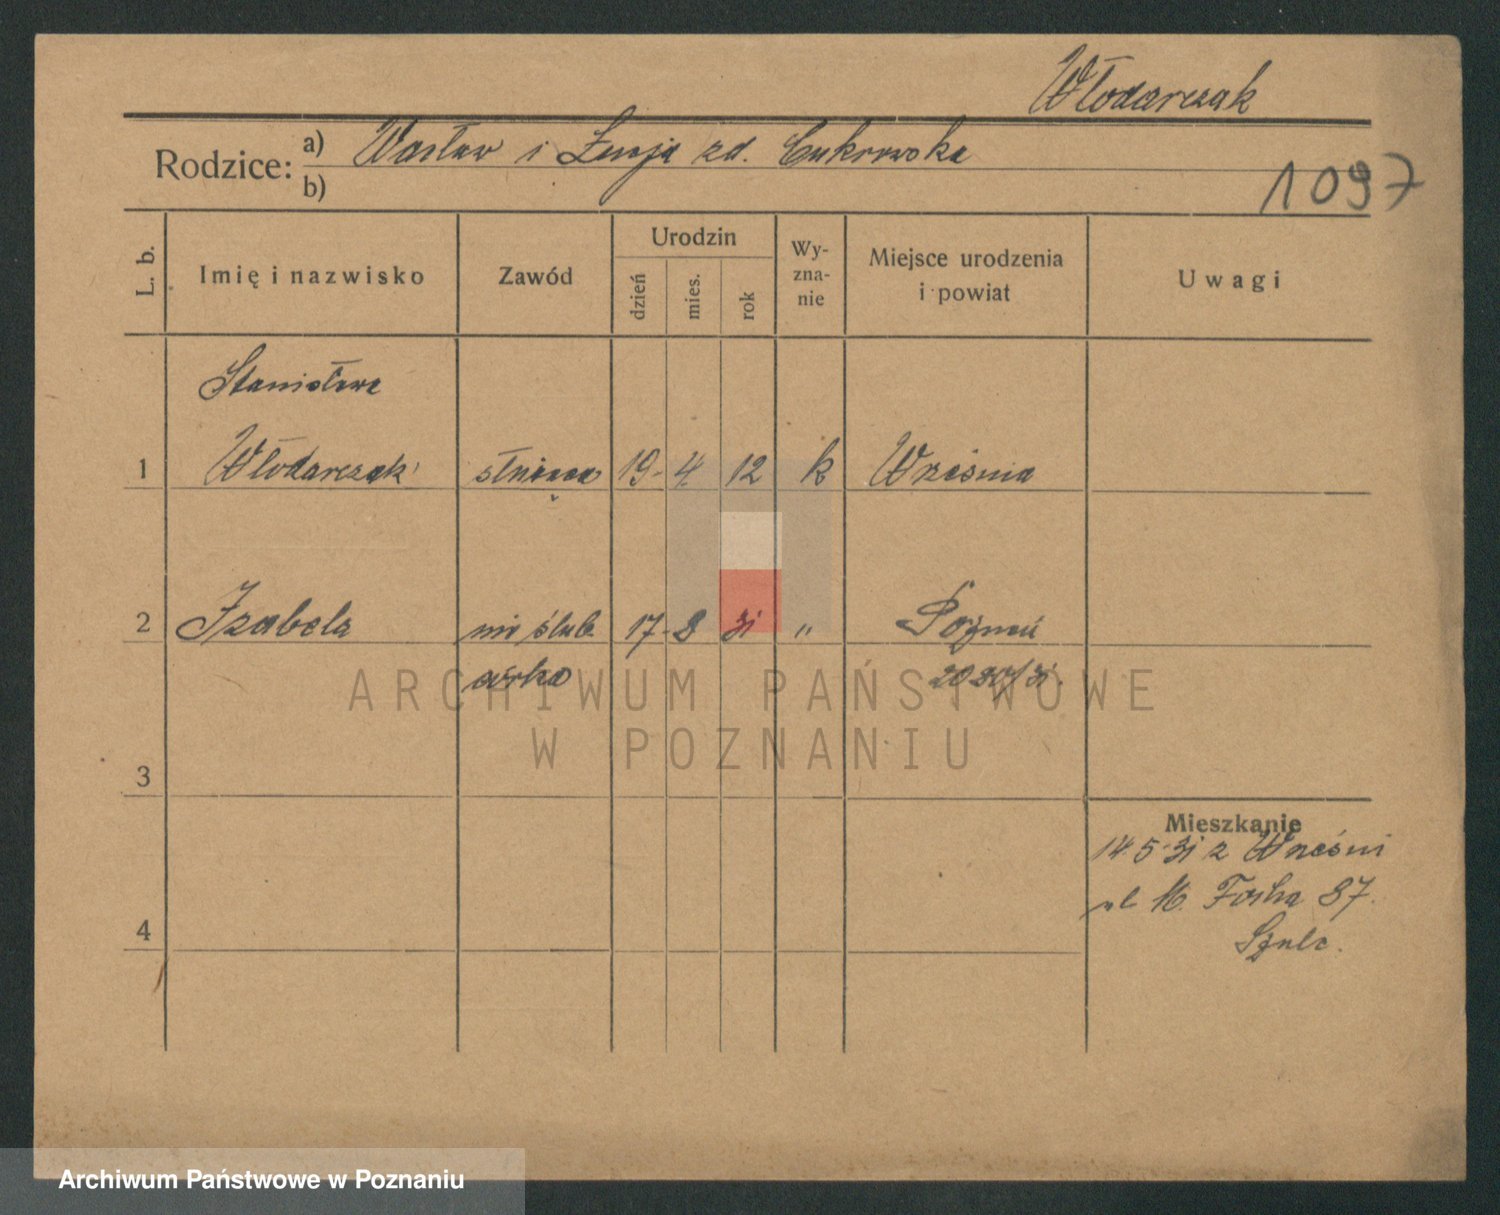 Włodarczak
Rodzice: a) Wacław i Łucja zd. Cukrowska
b)
1097
L. b.
Imię i nazwisko
Zawód
Urodzin
dzień
mies.
rok
Wy-
zna-
nie
Miejsce urodzenia
i powiat
Uwagi
Stanisława
1 Włodarczak służąca 19. 4. 12 k Września
2 Izabela nie ślub 17. 8 31 " Poznań
córka
3
Mieszkanie
14.5.31 z Wrześni
ul. M. Focha 87.
Szulc.
4
ARCHIWUM PAŃSTWOWE
W POZNANIU
Archiwum Państwowe w Poznaniu